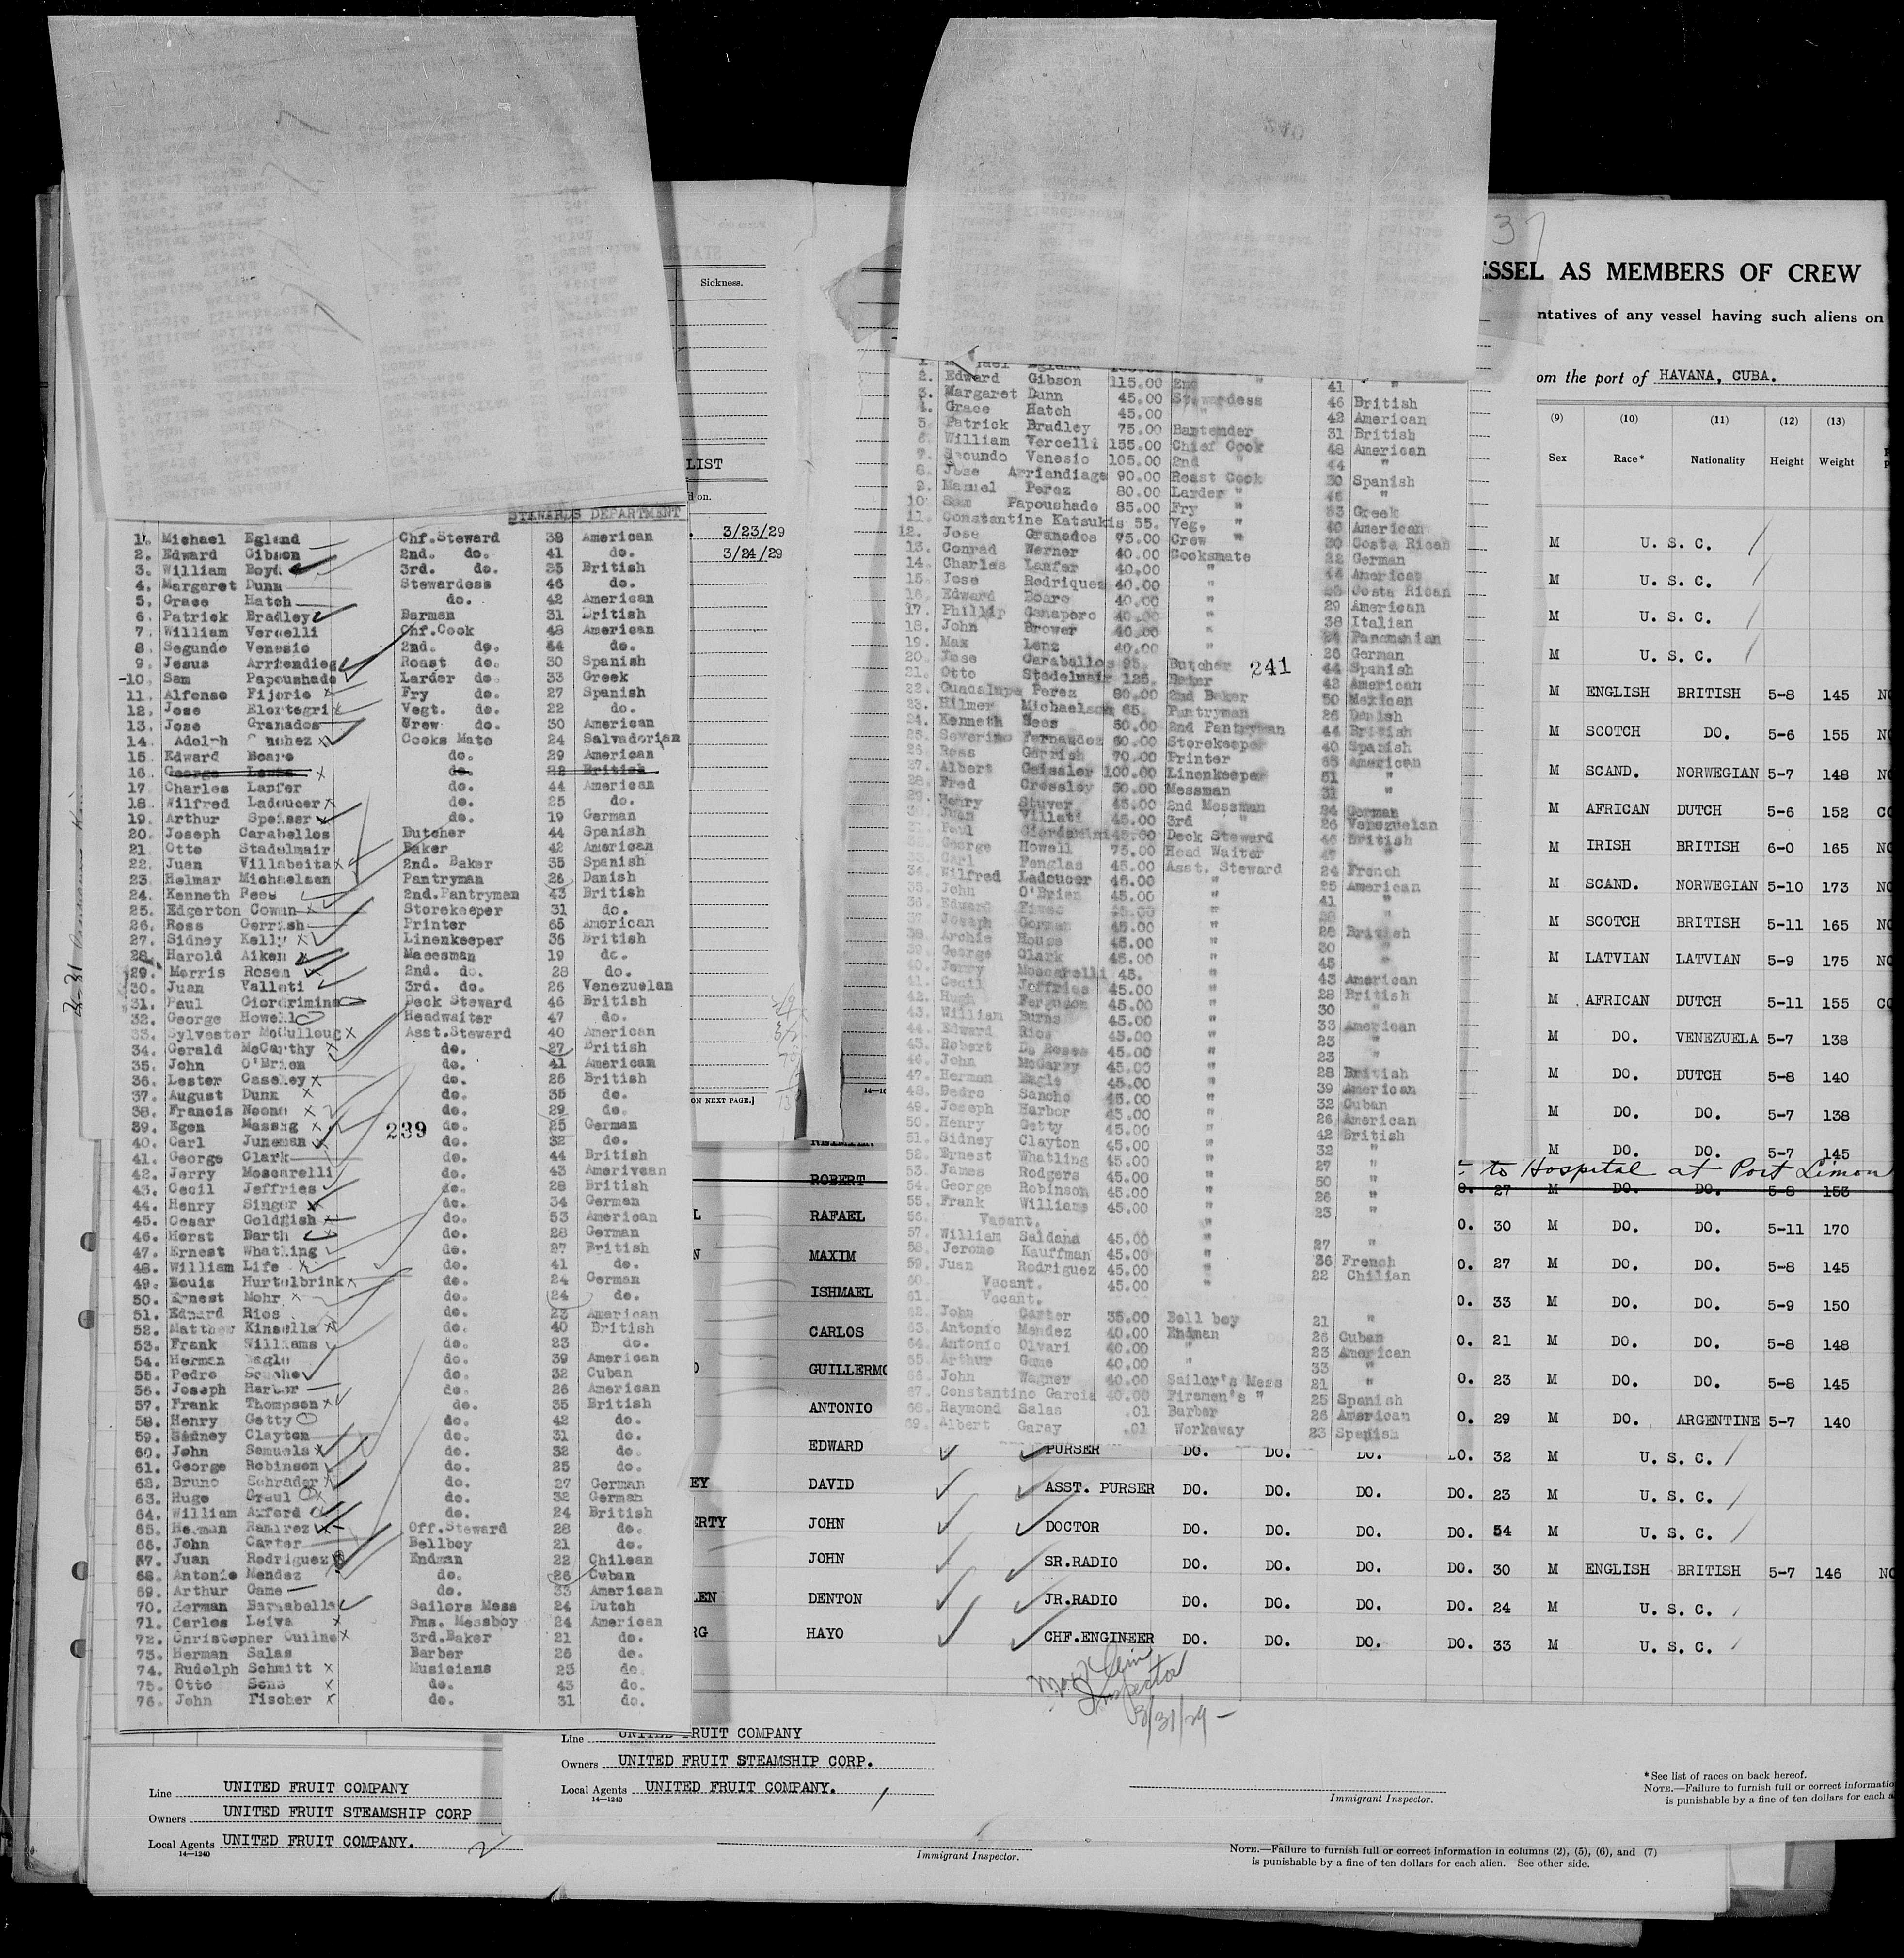 STEWARDS DEPARTMENT
1. Michael Egland Chf.Steward 38 American
2. Edward Gibson 2nd. do. 41 do.
3. William Boyd 3rd. do. 35 British
4. Margaret Dunn Stewardess 46 do.
5. Grace Hatch do. 42 American
6. Patrick Bradley Barman 31 British
7. William Vercelli Chf.Cook 48 American
8. Segundo Venesio 2nd. do. 44 do.
9. Jesus Roast do. 30 Spanish
-10. Sam Papoushado Larder do. 33 Greek
11. Alfonso Fijorio Fry do. 27 Spanish
12. Jose Vegt. do. 22 do.
13. Jose Granados Crew do. 30 American
14. Adolph Cooks Mate 24 Salvadorian
15. Edward Boaro do. 29 American
16. George Lewis do. 22 British
17. Charles Lanfer do. 44 American
18. Wilfred Ladoucer do. 25 do.
19. Arthur Speiser do. 19 German
20. Joseph Carabellos Butcher 44 Spanish
21. Otto Stadelmair Baker 42 American
22. Juan Villabeita 2nd. Baker 35 Spanish
23. Helmar Michaelsen Pantryman 26 Danish
24. Kenneth Rees 2nd.Pantryman 43 British
25. Edgerton Cowan Storekeeper 31 do.
26. Ross Gerrish Printer 65 American
27. Sidney Kelly Linenkeeper 36 British
28. Harold Aiken Messman 19 do.
29. Morris Rosen 2nd. do. 28 do.
30. Juan Vallati 3rd. do. 26 Venezuelan
31. Paul Giordrimina Deck Steward 46 British
32. George Howell Headwaiter 47 do.
33. Sylvester McCulloug Asst.Steward 40 American
34. Gerald McCarthy do. 27 British
35. John O'Brien do. 41 American
36. Lester Caseley do. 26 British
37. August Dunk do. 35 do.
38. Francis Noone do. 29 do.
39. Egon Massng do. 25 German
239
40. Carl Juneman do. 32 do.
41. George Clark do. 44 British
42. Jerry Moscarelli do. 43 Amerivean
43. Cecil Jeffries do. 28 British
44. Henry Singer do. 34 German
45. Cesar Goldfish do. 53 American
46. Horst Barth do. 28 German
47. Ernest Whatling do. 27 British
48. William Life do. 41 do.
49. Louis Hurtelbrink do. 24 German
50. Ernest Mohr do. 24 do.
51. Edward Rios do. 23 American
52. Matthew Kinsella do. 40 British
53. Frank Williams do. 23 do.
54. Herman Eagle do. 39 American
55. Pedro Sancho do. 32 Cuban
56. Joseph Harbor do. 26 American
57. Frank Thompson do. 35 British
58. Henry Getty do. 42 do.
59. Sidney Clayton do. 31 do.
60. John Samuels do. 32 do.
61. George Robinson do. 25 do.
62. Bruno Schrader do. 27 German
63. Hugo Graul do. 32 German
64. William Axford do. 24 British
65. Herman Ramirez Off.Steward 28 do.
66. John Carter Bellboy 21 do.
67. Juan Rodriguez Endman 22 Chilean
68. Antonio Mendez do. 26 Cuban
69. Arthur Game do. 33 American
70. Herman Barnabella Sailors Mess 24 Dutch
71. Carlos Leiva Fms. Messboy 24 American
72. Christopher Guilne 3rd.Baker 21 do.
73. Herman Salas Barber 26 do.
74. Rudolph Schmitt Musicians 23 do.
75. Otto Sens do. 43 do.
76. John Fischer do. 31 do.
Sickness.
LIST
3/23/29
3/24/29
ON NEXT PAGE.]
240
2. Edward Gibson 115.00 2nd " 41 "
3. Margaret Dunn 45.00 Stewardess 46 British
4. Grace Hatch 45.00 " 42 American
5. Patrick Bradley 75.00 Bartender 31 British
6. William Vercelli 155.00 Chief Cook 48 American
7. Segundo Venesio 105.00 2nd " 44 "
8. Jose Arriandiaga 90.00 Roast Cook 30 Spanish
9. Manuel Perez 80.00 Larder " 46 "
10. Sam Papoushado 85.00 Fry " 33 Greek
11. Constantine Katsukis 55. Veg. " 40 American
12. Jose Granados 75.00 Crew " 30 Costa Rican
13. Conrad Werner 40.00 Cooksmate 22 German
14. Charles Lanfer 40.00 " 44 American
15. Jose Rodriquez 40.00 " Costa Rican
16. Edward Boaro 40.00 " 29 American
17. Phillip Ganaporo 40.00 " 38 Italian
18. John Brower 40.00 " 24 Panamanian
19. Max Lenz 40.00 " 26 German
20. Jose Caraballos 95. Butcher 44 Spanish
241
21. Otto Stadelmair 125. Baker 42 American
22. Guadalupe Perez 80.00 2nd Baker 50 Mexican
23. Hilmer Michaelson 65. Pantryman 26 Danish
24. Kenneth Rees 50.00 2nd Pantryman 44 British
25. Severino Fernandez 60.00 Storekeeper 40 Spanish
26. Ross Gerrish 70.00 Printer 65 American
27. Albert Geissler 100.00 Linenkeeper 51 "
28. Fred Crossley 50.00 Messman 31 "
29. Henry Stuver 45.00 2nd Messman 24 German
30. Juan Villati 45.00 3rd " 26 Venezuelan
Paul Giordamini 45.00 Deck Steward 46 British
George Howell 75.00 Head Waiter 47 "
Carl Fenglas 45.00 Asst. Steward 24 French
34. Wilfred Ladoucer 45.00 " 25 American
35. John O'Brien 45.00 " 41 "
36. Edward 45.00 "
37. Joseph Gorman 45.00 " 28 British
38. Archie House 45.00 " 30 "
39. George Clark 45.00 " 45 "
40. Jerry Moscarelli 45. " 43 American
41. Cecil Jeffries 45.00 " 28 British
42. Hugh Ferguson 45.00 " 30 "
43. William Burns 45.00 " 33 American
44. Edward Rios 45.00 " 23 "
45. Robert De Roses 45.00 " 23 "
46. John McGarry 45.00 " 28 British
47. Herman Eagle 45.00 " 39 American
48. Pedro Sancho 45.00 " 32 Cuban
49. Joseph Harbor 45.00 " 26 American
50. Henry Getty 45.00 " 42 British
51. Sidney Clayton 45.00 " 32 "
52. Ernest Whatling 45.00 " 27 "
53. James Rodgers 45.00 " 50 "
54. George Robinson 45.00 " 26 "
55. Frank Williams 45.00 " 23 "
56. Vacant.
57. William Saldana 45.00 " 27 "
58. Jerome Kauffman 45.00 " 36 French
59. Juan Rodriguez 45.00 " 22 Chilian
60. Vacant.
61. Vacant.
62. John Carter 35.00 Bell boy 21 "
63. Antonio Mendez 40.00 Endman 26 Cuban
64. Antonio Olvari 40.00 " 23 American
65. Arthur Game 40.00 " 33 "
66. John Wagner 40.00 Sailor's Mess 21 "
67. Constantino Garcia 40.00 Firemen's " 25 Spanish
68. Raymond Salas .01 Barber 26 American
69. Albert Garay .01 Workaway 23 Spanish
37
ESSEL AS MEMBERS OF CREW
ntatives of any vessel having such aliens on
om the port of HAVANA, CUBA.
(9) (10) (11) (12) (13)
Sex Race* Nationality Height Weight
M U. S. C.
M U. S. C.
M U. S. C.
M U. S. C.
M ENGLISH BRITISH 5-8 145 NO
M SCOTCH DO. 5-6 155 NO
M SCAND. NORWEGIAN 5-7 148 NO
M AFRICAN DUTCH 5-6 152 CO
M IRISH BRITISH 6-0 165 NO
M SCAND. NORWEGIAN 5-10 173 NO
M SCOTCH BRITISH 5-11 165 NO
M LATVIAN LATVIAN 5-9 175 NO
M AFRICAN DUTCH 5-11 155 CO
M DO. VENEZUELA 5-7 138
M DO. DUTCH 5-8 140
M DO. DO. 5-7 138
M DO. DO. 5-7 145
to Hospital at Port Limon
ROBERT O. 27 M DO. DO. 5-8 153
RAFAEL O. 30 M DO. DO. 5-11 170
MAXIM O. 27 M DO. DO. 5-8 145
ISHMAEL O. 33 M DO. DO. 5-9 150
CARLOS O. 21 M DO. DO. 5-8 148
GUILLERMO O. 23 M DO. DO. 5-8 145
ANTONIO O. 29 M DO. ARGENTINE 5-7 140
EDWARD PURSER DO. DO. DO. DO. 32 M U. S. C.
EY DAVID ASST. PURSER DO. DO. DO. DO. 23 M U. S. C.
ERTY JOHN DOCTOR DO. DO. DO. DO. 54 M U. S. C.
JOHN SR.RADIO DO. DO. DO. DO. 30 M ENGLISH BRITISH 5-7 146 NO
LEN DENTON JR.RADIO DO. DO. DO. DO. 24 M U. S. C.
RG HAYO CHF.ENGINEER DO. DO. DO. DO. 33 M U. S. C.
Inspector
3/31/29
Line UNITED FRUIT COMPANY
Owners UNITED FRUIT STEAMSHIP CORP.
Local Agents UNITED FRUIT COMPANY.
14—1240
Immigrant Inspector.
*See list of races on back hereof.
NOTE.—Failure to furnish full or correct informatio
is punishable by a fine of ten dollars for each a
Line UNITED FRUIT COMPANY
Owners UNITED FRUIT STEAMSHIP CORP
Local Agents UNITED FRUIT COMPANY.
14—1240
2
Immigrant Inspector.
NOTE.—Failure to furnish full or correct information in columns (2), (5), (6), and (7)
is punishable by a fine of ten dollars for each alien. See other side.